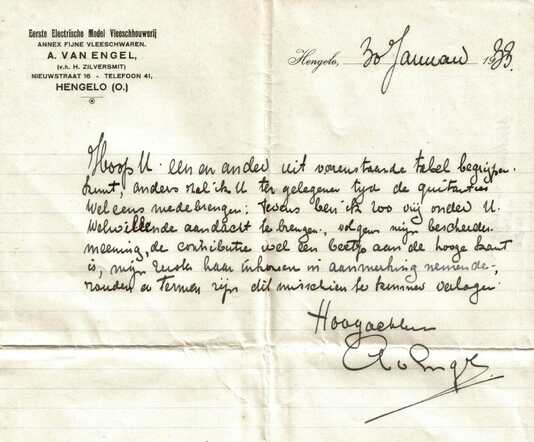 Eerste Electrische Model Vleeschhouwerij
ANNEX FIJNE VLEESCHWAREN.
A. VAN ENGEL,
(v.h. H. ZILVERSMIT)
NIEUWSTRAAT 16 - TELEFOON 41,
HENGELO (O.)
Hengelo, 30 Januari 1933.
Hoop U een en ander uit vorenstaande tabel begrijpen
kunt, anders zal ik U ter gelegener tijd de quitanties
wel eens medebrengen; tevens ben ik zoo vrij onder U.
Welwillende aandacht te brengen, volgens mijn bescheiden
meening, de contributie wel een beetje aan de hooge kant
is, mijn zuster haar inkomen in aanmerking nemende,
zouden er termen zijn dit misschien te kunnen verlagen.
Hoogachtend